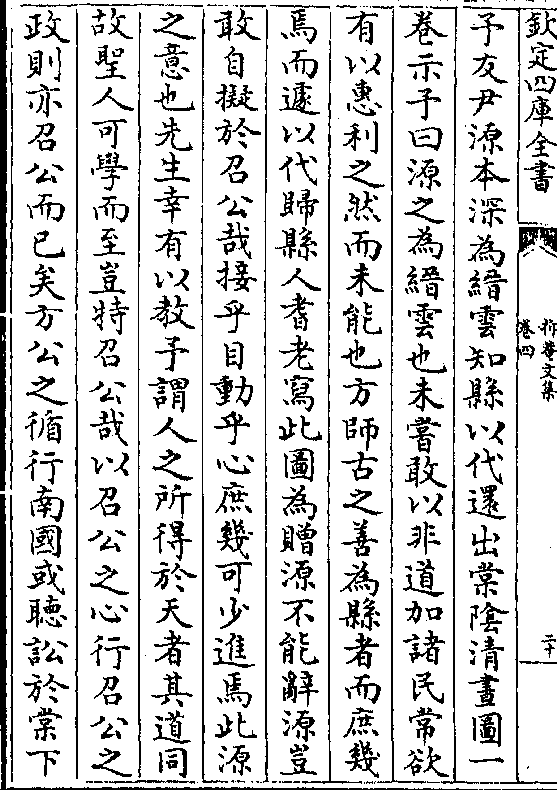 欽定四庫全書
栟菴文集
卷四
二十
予友尹源本深為縉雲知縣以代還出棠陰清晝圖一
卷示予曰源之為縉雲也未嘗敢以非道加諸民常欲
有以惠利之然而未能也方師古之善為縣者而庶幾
焉而遽以代歸縣人耆老寫此圖為贈源不能辭源豈
敢自擬於召公哉接乎目動乎心庶幾可少進焉此源
之意也先生幸有以教予謂人之所得於天者其道同
故聖人可學而至豈特召公哉以召公之心行召公之
政則亦召公而已矣方公之循行南國或聽訟於棠下